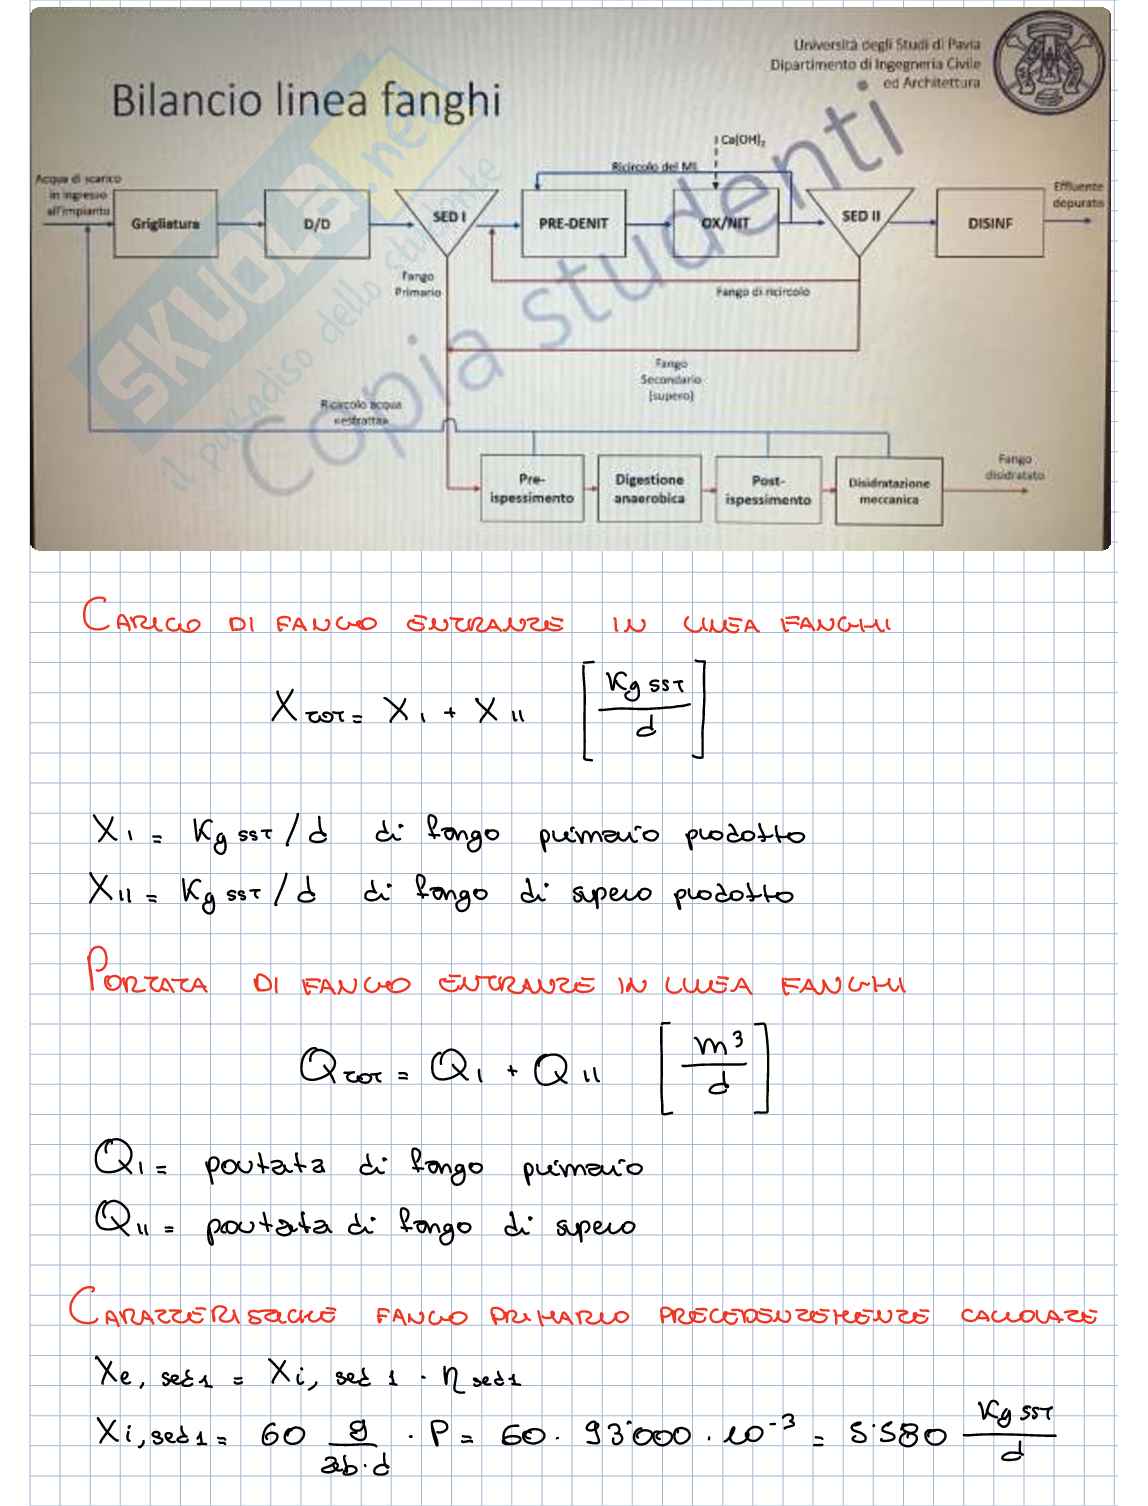 Università degli Studi di Pavia
Dipartimento di Ingegneria Civile
ed Architettura
Bilancio linea fanghi
Ca(OH)₂
Ricircolo del ML
Acqua di scarico
in ingresso
all'impianto
Effluente
depurato
Grigliatura
D/D
SED I
PRE-DENIT
OX/NIT
SED II
DISINF
Fango
Primario
Fango di ricircolo
Fango
Secondario
(supero)
Ricircolo acqua
«estratta»
Pre-
ispessimento
Digestione
anaerobica
Post-
ispessimento
Disidratazione
meccanica
Fango
disidratato
SKUOLA.net
il paradiso dello studente
Copia studenti
CARICO DI FANGO ENTRANTE IN LINEA FANGHI
X TOT = X I + X II [Kg SST / d]
X I = Kg SST / d di fango primario prodotto
X II = Kg SST / d di fango di supero prodotto
PORTATA DI FANGO ENTRANTE IN LINEA FANGHI
Q TOT = Q I + Q II [m³ / d]
Q I = portata di fango primario
Q II = portata di fango di supero
CARATTERISTICHE FANGO PRIMARIO PRECEDENTEMENTE CALCOLATE
Xe, sed1 = Xi, sed 1 · η sed1
Xi, sed1 = 60 g / ab·d · P = 60 · 93'000 · 10⁻³ = 5'580 Kg SST / d